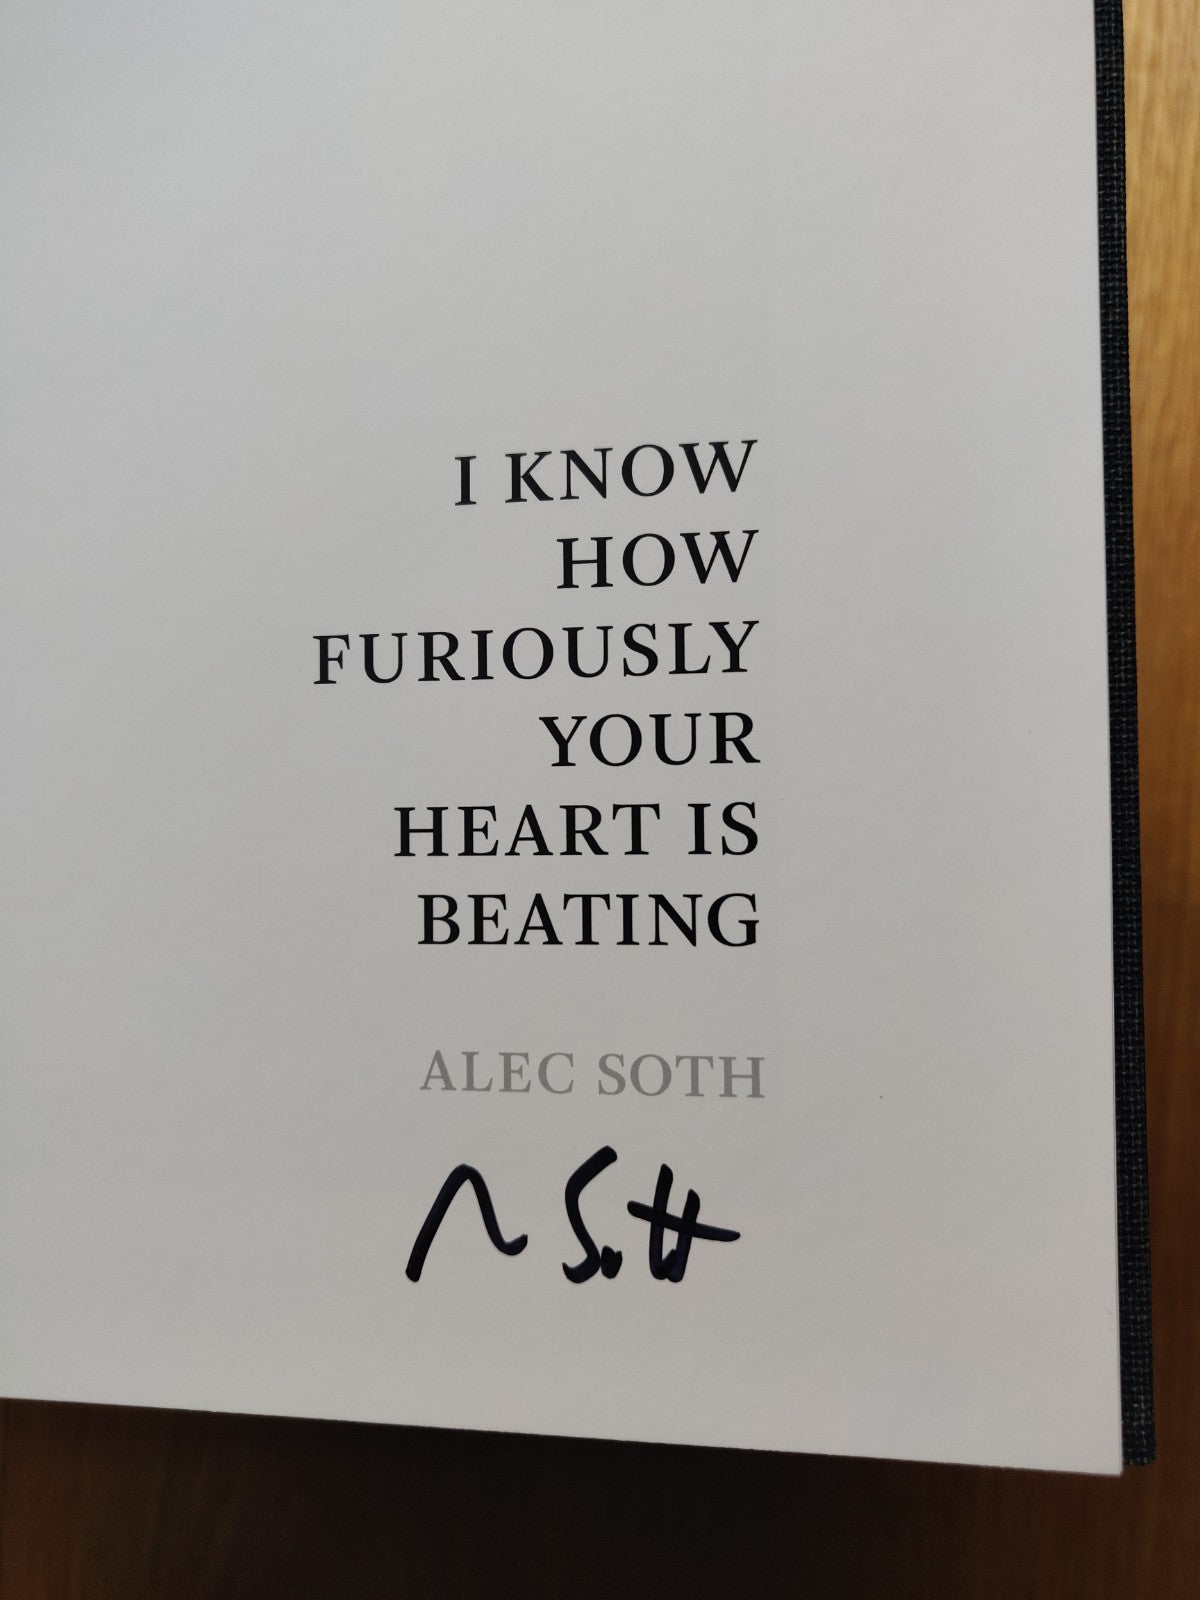 I KNOW
HOW
FURIOUSLY
YOUR
HEART IS
BEATING
ALEC SOTH